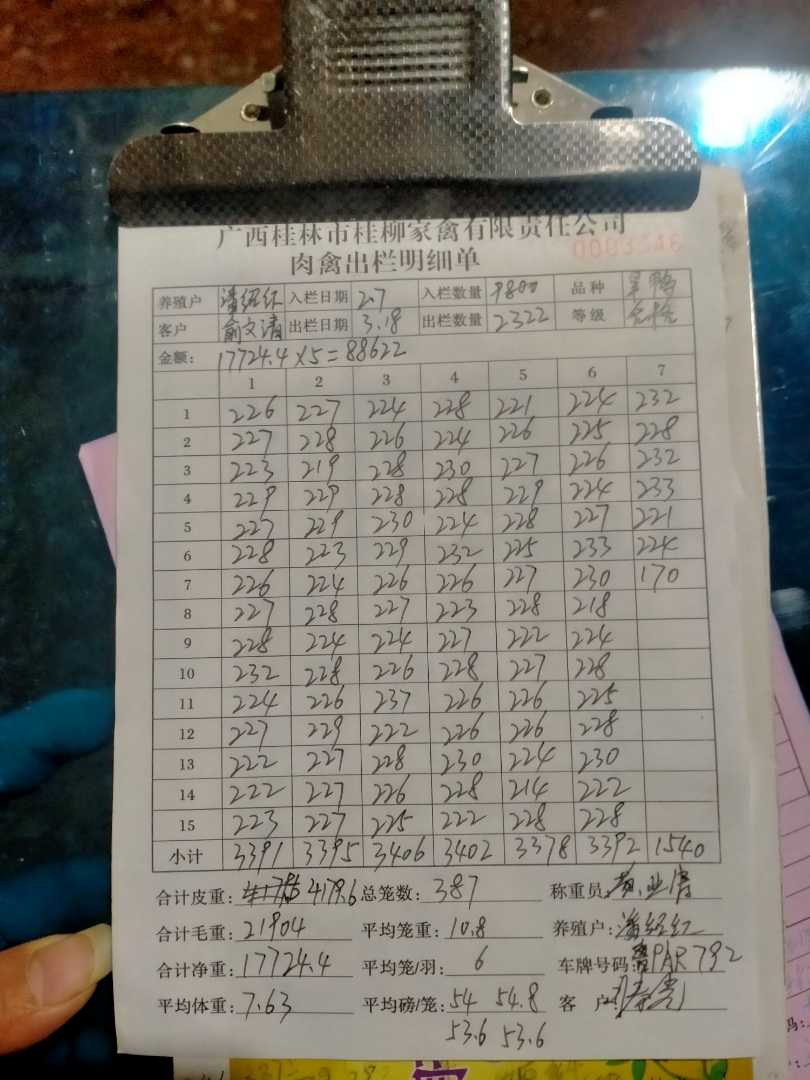 广西桂林市桂柳家禽有限责任公司
肉禽出栏明细单
养殖户 潘绍红 入栏日期 2.7 入栏数量 9800 品种
客户 俞文清 出栏日期 3.18 出栏数量 2322 等级
金额: 17724.4×5=88622
1 2 3 4 5 6 7
1 226 227 224 228 221 224 232
2 227 228 226 224 226 225 228
3 223 219 228 230 227 226 232
4 229 229 228 228 229 224 233
5 227 229 230 224 228 227 221
6 228 223 229 232 225 233 224
7 226 224 226 226 227 230 170
8 227 228 227 223 228 218
9 228 224 224 227 222 224
10 232 228 226 228 227 228
11 224 226 237 226 226 225
12 227 229 222 226 226 228
13 222 227 228 230 224 230
14 222 227 226 228 214 222
15 223 227 225 222 228 228
小计 3391 3395 3406 3402 3378 3392 1540
合计皮重: 4179.6 总笼数: 387 称重员:
合计毛重: 21904 平均笼重: 10.8 养殖户: 潘绍红
合计净重: 17724.4 平均笼/羽: 6 车牌号码: PAR792
平均体重: 7.63 平均磅/笼: 54 54.8 客 户:
53.6 53.6